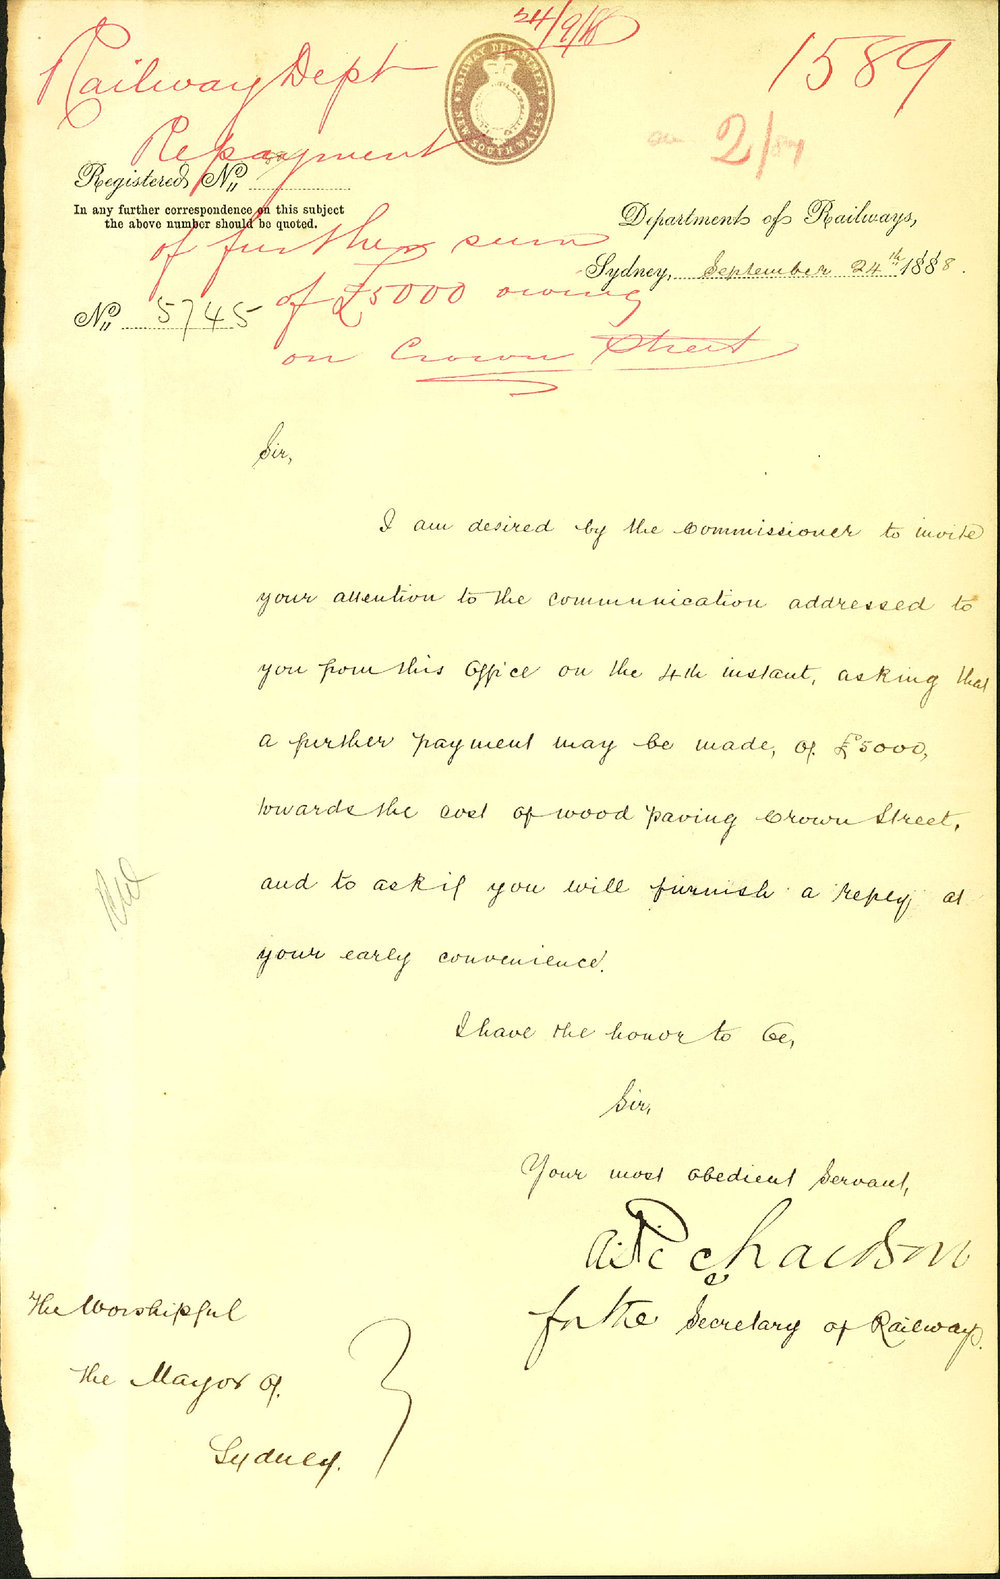 24/9/88
Railway Dept
1589
RAILWAY DEPARTMENT
NEW SOUTH WALES
Repayment
2/84
Registered No.
In any further correspondence on this subject
the above number should be quoted.
of further sum
Department of Railways,
Sydney, September 24th 1888.
of £5000 owing
No. 5745
on Crown Street
Sir,
I am desired by the Commissioner to invite
your attention to the communication addressed to
you from this Office on the 4th instant, asking that
a further payment may be made, of £5000,
towards the cost of wood paving Crown Street,
and to ask if you will furnish a reply at
your early convenience.
I have the honor to be,
Sir,
Your most obedient Servant,
Richardson
for the Secretary of Railways.
The Worshipful
The Mayor of
Sydney.